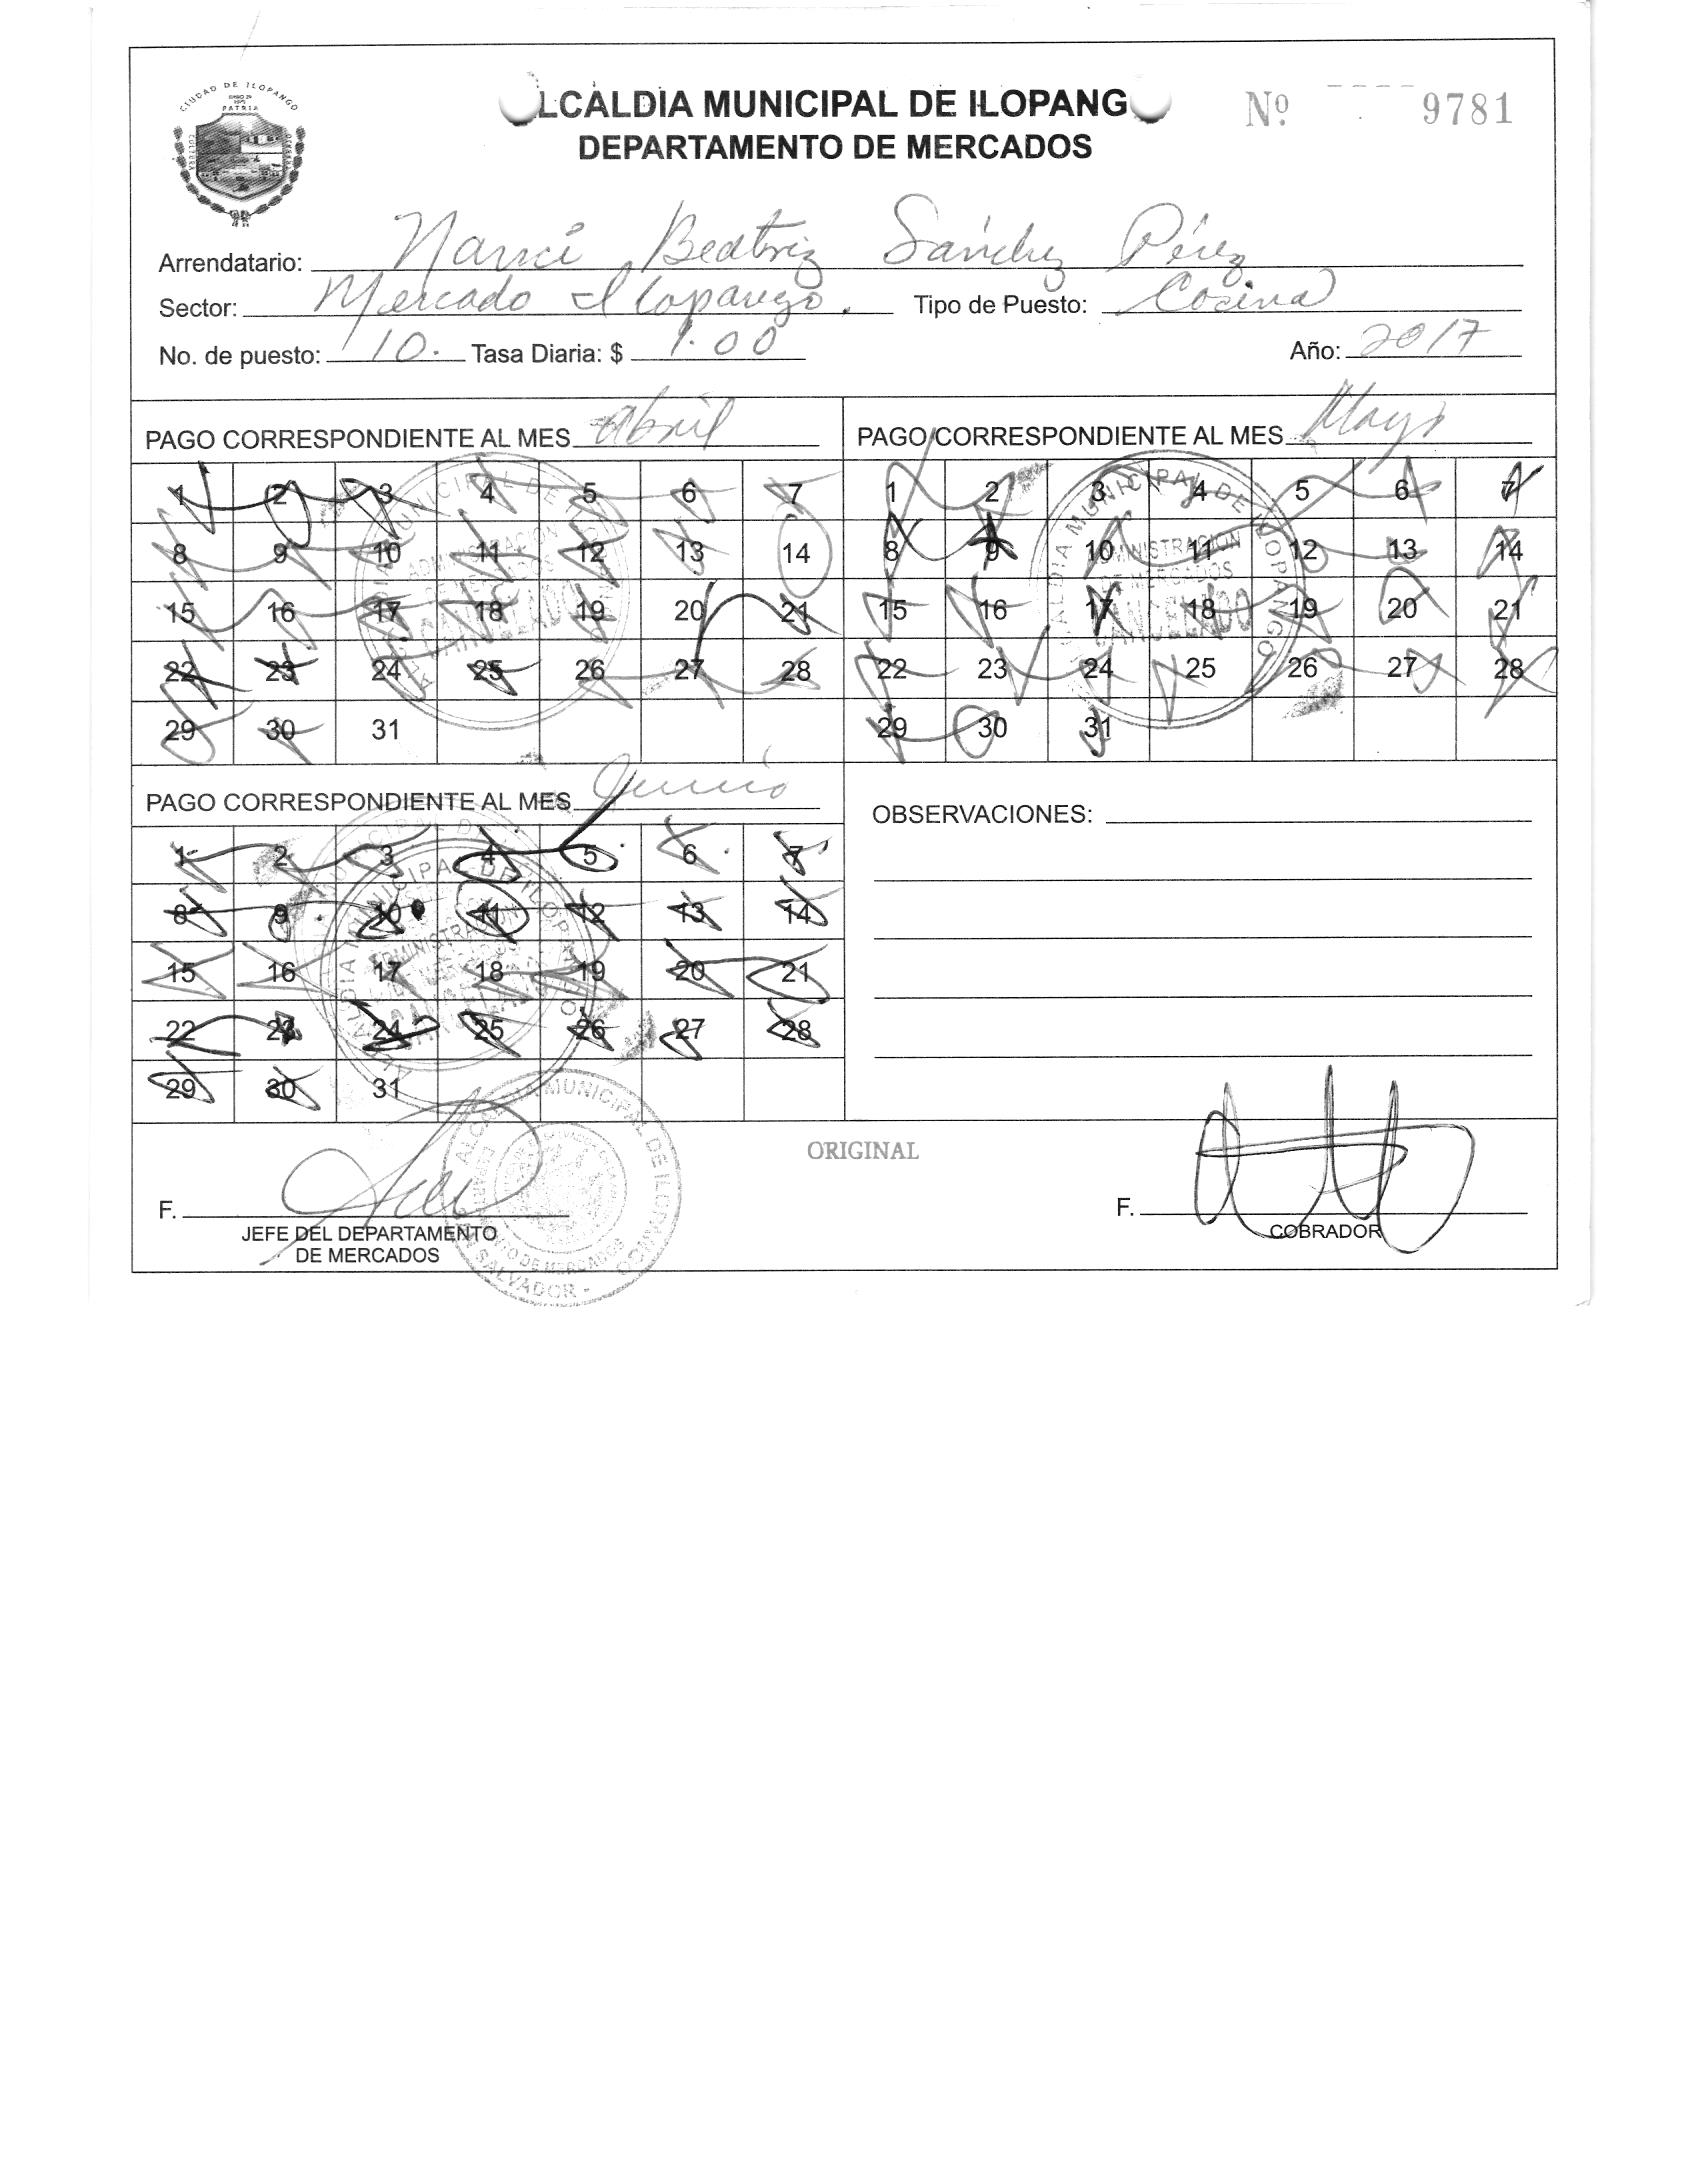 CIUDAD DE ILOPANGO
PATRIA
LCALDIA MUNICIPAL DE ILOPANG
Nº 9781
DEPARTAMENTO DE MERCADOS
Arrendatario: Nanci Beatriz Sánchez Pérez
Sector: Mercado Ilopango. Tipo de Puesto: Cocina
No. de puesto: 10. Tasa Diaria: $ 1.00 Año: 2017
PAGO CORRESPONDIENTE AL MES Abril
1 2 3 4 5 6 7
8 9 10 11 12 13 14
15 16 17 18 19 20 21
22 23 24 25 26 27 28
29 30 31
ADMINISTRACION
CANCELADO
PAGO CORRESPONDIENTE AL MES Mayo
1 2 3 4 5 6 7
8 9 10 11 12 13 14
15 16 17 18 19 20 21
22 23 24 25 26 27 28
29 30 31
ALCALDIA MUNICIPAL DE ILOPANGO
ADMINISTRACION
DE MERCADOS
CANCELADO
PAGO CORRESPONDIENTE AL MES Junio
1 2 3 4 5 6 7
8 9 10 11 12 13 14
15 16 17 18 19 20 21
22 23 24 25 26 27 28
29 30 31
ALCALDIA MUNICIPAL DE ILOPANGO
ADMINISTRACION
OBSERVACIONES:
ORIGINAL
F.
JEFE DEL DEPARTAMENTO
DE MERCADOS
ALCALDIA MUNICIPAL DE ILOPANGO
SALVADOR
F.
COBRADOR